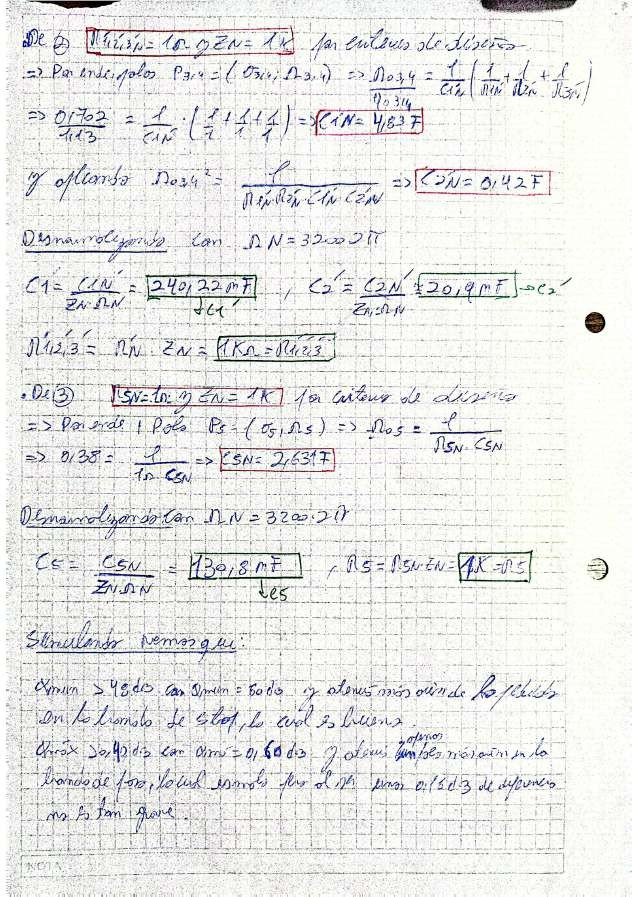 .De ② R1,2,3N = 1Ω y ZN = 1K por criterios de diseño
=> Por ende, polos P3,4 = (σ3,4; Ω3,4) => Ω03,4/Ω03,4 = 1/C1N (1/R1N + 1/R2N + 1/R3N)
=> 0,702/1,13 = 1/C1N · (1/1 + 1/1 + 1/1) => C1N = 4,83F
y aplicando Ω03,4² = 1/(R1N·R2N·C1N·C2N) => C2N = 0,42F
Desnormalizando con ΩN = 3200·2π
C1' = C1N'/ZN·ΩN = 240,22mF → C1' , C2' = C2N'/ZN·ΩN = 20,9mF → C2'
R1,2,3' = RN · ZN = 1KΩ = R1,2,3'
.De ③ R5N = 1Ω y ZN = 1K por criterios de diseño
=> Por ende 1 Polo P5 = (σ5, Ω5) => Ω05 = 1/(R5N · C5N)
=> 0,38 = 1/(1Ω · C5N) => C5N = 2,631F
Desnormalizando con ΩN = 3200·2π
C5 = C5N/ZN·ΩN = 130,8mF → C5 , R5 = R5N·ZN = 1K = R5
Simulando vemos que:
αmin > 48dB con αmin = 50dB y atenúa más aún de lo pedido
en la banda de stop, lo cual es bueno.
αmáx > 0,42dB con αm = 0,60dB y atenúa más aún en la
banda de paso, lo cual es malo pero al ser unos 0,15dB de diferencia
no es tan grave.
NOTA